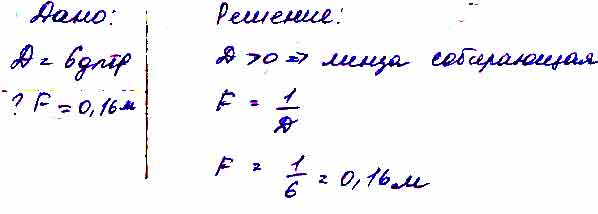 Дано:
D = 6 дптр
? F = 0,16 м
Решение:
D > 0 => линза собирающая
F = 1/D
F = 1/6 = 0,16 м